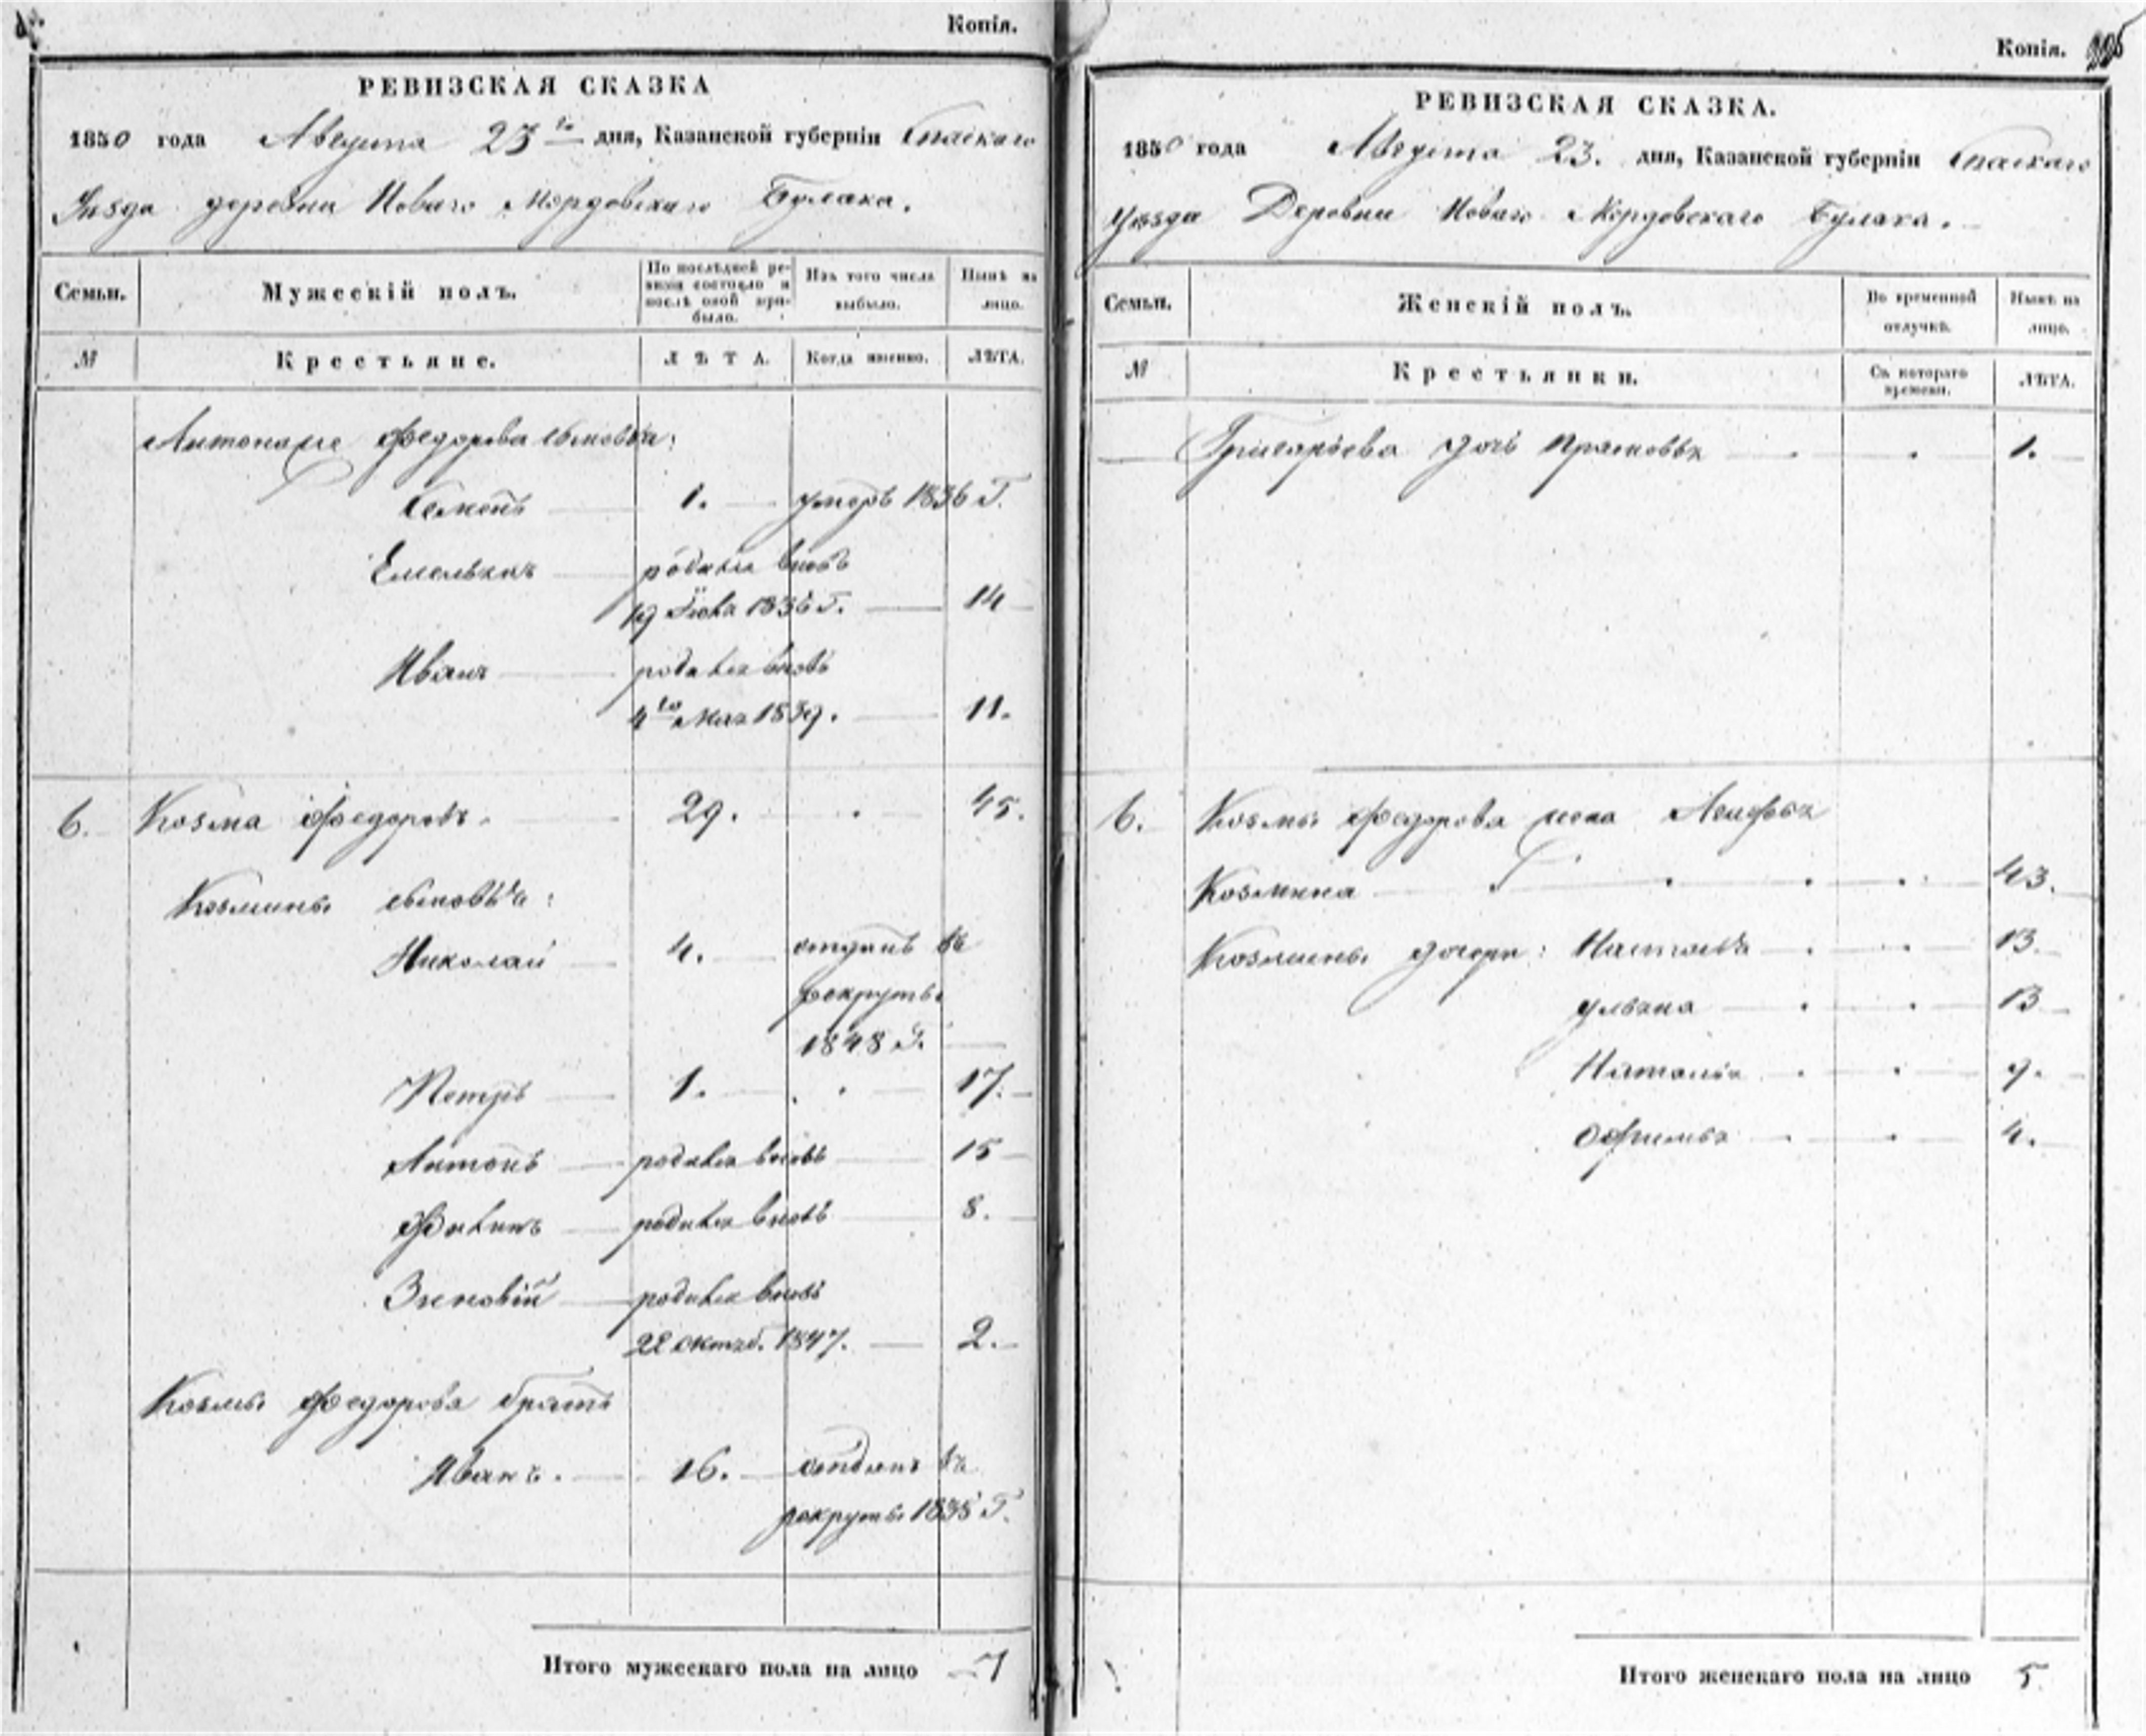 Копія.
РЕВИЗСКАЯ СКАЗКА
1850 года Августа 23го дня, Казанской губерніи Спаскаго
Уѣзда деревни Новаго Мордовскаго Булака.
Семьи. Мужескій полъ. По послѣдней ревизіи состояло и послѣ оной прибыло. Изъ того числа выбыло. Нынѣ на лицо.
№ Крестьяне. ЛѢТА. Когда именно. ЛѢТА.
Федорова сыновья:
Семенъ 1. умеръ 1836 Г.
Емельянъ родился вновь
19 1836 Г. 14
Иванъ родился вновь
4го Мая 1839. 11.
6. Козма Федоровъ. 29. 45.
Козмины сыновья:
Николай 4. отданъ въ
рекруты
1848 Г.
Петръ 1. 17.
Антонъ родился вновь 15
родился вновь 8.
Зиновій родился вновь
22 Октяб. 1847. 2.
Козмы Федорова братъ
Иванъ. 16. отданъ въ
рекруты 1835 Г.
Итого мужескаго пола на лицо 7
Копія.
РЕВИЗСКАЯ СКАЗКА.
1850 года Августа 23. дня, Казанской губерніи Спаскаго
Уѣзда Деревни Новаго Мордовскаго Булака.
Семьи. Женскій полъ. Во временной отлучкѣ. Нынѣ на лицо.
№ Крестьянки. Съ котораго времени. ЛѢТА.
Григорьева дочь 1.
6. Козмы Федорова жена
Козмина 43.
Козмины дочери: Настасья 13.
Ульяна 13
Наталья 9.
4.
Итого женскаго пола на лицо 5